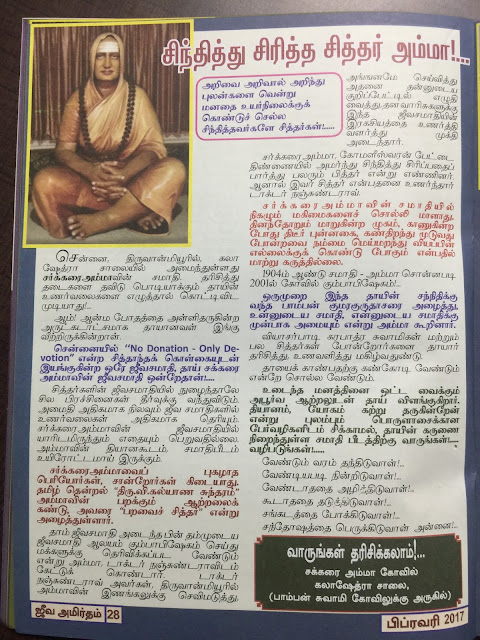 சிந்தித்து சிரித்த சித்தர் அம்மா!...
அறிவை அறிவால் அறிந்து
புலன்களை வென்று
மனதை உயர்நிலைக்குக்
கொண்டுச் செல்ல
சிந்தித்தவர்களே சித்தர்கள்!.....
சென்னை, திருவான்மியூரில், கலா
ஷேத்ரா சாலையில் அமைந்துள்ளது
சர்க்கரை.அம்மாவின் சமாதி. தரிசித்து
தடைகளை தவிடு பொடியாக்கும் தாயின்
உணர்வலைகளை எழுத்தால் கொட்டிவிட
முடியாது!...
ஆம்! ஆன்ம போதத்தை அள்ளிதருகின்ற
அருட்கடாட்சமாக தாயானவள் இங்கு
வீற்றிருக்கிறாள்.
சென்னையில் "No Donation - Only De-
votion" என்ற சித்தாந்தக் கொள்கையுடன்
இயங்குகின்ற ஒரே ஜீவசமாதி, தாய் சக்கரை
அம்மாவின் ஜீவசமாதி ஒன்றேதான்!....
சித்தர்களின் ஜீவசமாதியில் நுழைந்தாலே
சில பிரச்சினைகள் தீர்வுக்கு வந்துவிடும்.
அமைதி அதிகமாக நிலவும் ஜீவ சமாதிகளில்
உணர்வலைகள் அதிகமாக தெரியும்.
சர்க்கரை.அம்மாவின் ஜீவசமாதியில்
யாரிடமிருந்தும் எதையும் பெறுவதில்லை.
அம்மாவின் தியானகூடம். சமாதிபீடம்
உயிரோட்டமாய் இருக்கும்.
சர்க்கரைஅம்மாவைப் புகழாத
பெரியோர்கள், சான்றோர்கள் கிடையாது.
தமிழ் தென்றல் "திரு.வி.கல்யாண சுந்தரம்"
அம்மாவின் பறக்கும் ஆற்றலைக்
கண்டு, அவரை "பறவைச் சித்தர்" என்று
அழைத்துள்ளார்.
தாம் ஜீவசமாதி அடைந்த பின் தம்முடைய
ஜீவசமாதி ஆலயம் கும்பாபிஷேகம் செய்து
மக்களுக்கு தெரிவிக்கப்பட வேண்டும்
என்று அம்மா, டாக்டர் நஞ்சுண்டராவிடம்
கேட்டுக் கொண்டார். டாக்டர்
நஞ்சுண்டராவ் அவர்கள், திருவான்மியூரில்
அம்மாவின் இணங்களுக்கு செவிமடுத்து,
அங்ஙனமே செய்வித்து
அதனை தன்னுடைய
குறிப்பேட்டில் எழுதி
வைத்து,தனவாரிசுகளுக்கு
இந்த ஜீவசமாதியின்
இரகசியத்தை உணர்த்தி
வளர்த்து முக்தி
அடைந்தார்.
சர்க்கரை அம்மா, கோமளீஸ்வரன் பேட்டை
திண்ணையில் அமர்ந்து சிந்தித்து சிரிப்பதைப்
பார்த்து பலரும் பித்தர் என்று எண்ணினர்.
ஆனால் இவர் சித்தர் என்பதனை உணர்ந்தார்
டாக்டர் நஞ்சுண்டராவ்.
சர்க்கரைஅம்மாவின் சமாதியில்
நிகழும் மகிமைகளைச் சொல்லி மாளாது.
தினந்தோறும் மாறுகின்ற முகம், காணுகின்ற
போது திடீர் புன்னகை, கண்திறந்து மூடுவது
போன்றவை நம்மை மெய்மறந்து வியப்பின்
எல்லைக்குக் கொண்டு போகும் என்பதில்
மாற்று கருத்தில்லை.
1904ம் ஆண்டு சமாதி - அம்மா சொன்னபடி
2001ல் கோவில் கும்பாபிஷேகம்!...
ஒருமுறை இந்த தாயின் சந்நிதிக்கு
வந்த பாம்பன் குமரகுருதாசரை அழைத்து,
உன்னுடைய சமாதி, என்னுடைய சமாதிக்கு
முன்பாக அமையும் என்று அம்மா கூறினார்.
வியாசர்பாடி கரபாத்ர சுவாமிகள் மற்றும்
பல சித்தர்கள் போன்றோர்களை தாயார்
தரிசித்து, உணவளித்து மகிழ்வதுண்டு.
தாயைக் காண்பதற்கு கண்கோடி வேண்டும்
என்றே சொல்ல வேண்டும்.
உடைந்த மனத்தினை ஒட்ட வைக்கும்
அபூர்வ ஆற்றலுடன் தாய் விளங்குகிறார்.
தியானம், யோகம் கற்று தருகின்றேன்
என்று புலம்பும் பொருளாசைக்கான
பேர்வழிகளிடம் சிக்காமல், தாயின் கருணை
நிறைந்துள்ள சமாதி பீடத்திற்கு வாருங்கள்!.....
வழிபடுங்கள்!......
வேண்டும் வரம் தந்திடுவாள்!..
வேண்டியபடி நின்றிடுவாள்!..
வேண்டாததை அழித்திடுவாள்!..
கூடாததை தடுத்திடுவாள்!..
சங்கடத்தை போக்கிடுவாள்!..
சந்தோஷத்தை பெருக்கிடுவாள் அன்னை!...
வாருங்கள் தரிசிக்கலாம்!...
சக்கரை அம்மா கோவில்
கலாஷேத்ரா சாலை,
(பாம்பன் சுவாமி கோவிலுக்கு அருகில்)
ஜீவ அமிர்தம் 28
பிப்ரவரி 2017